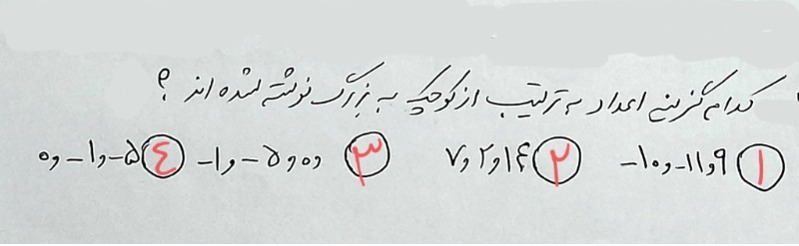 کدام گزینه اعداد به ترتیب از کوچک به بزرگ نوشته شده اند ؟
۱ ۹ و ۱۱- و ۱۰- ۲ ۱۴ و ۲ و ۷ ۳ ۰ و ۵- و ۱- ۴ ۵- و ۱- و ۰